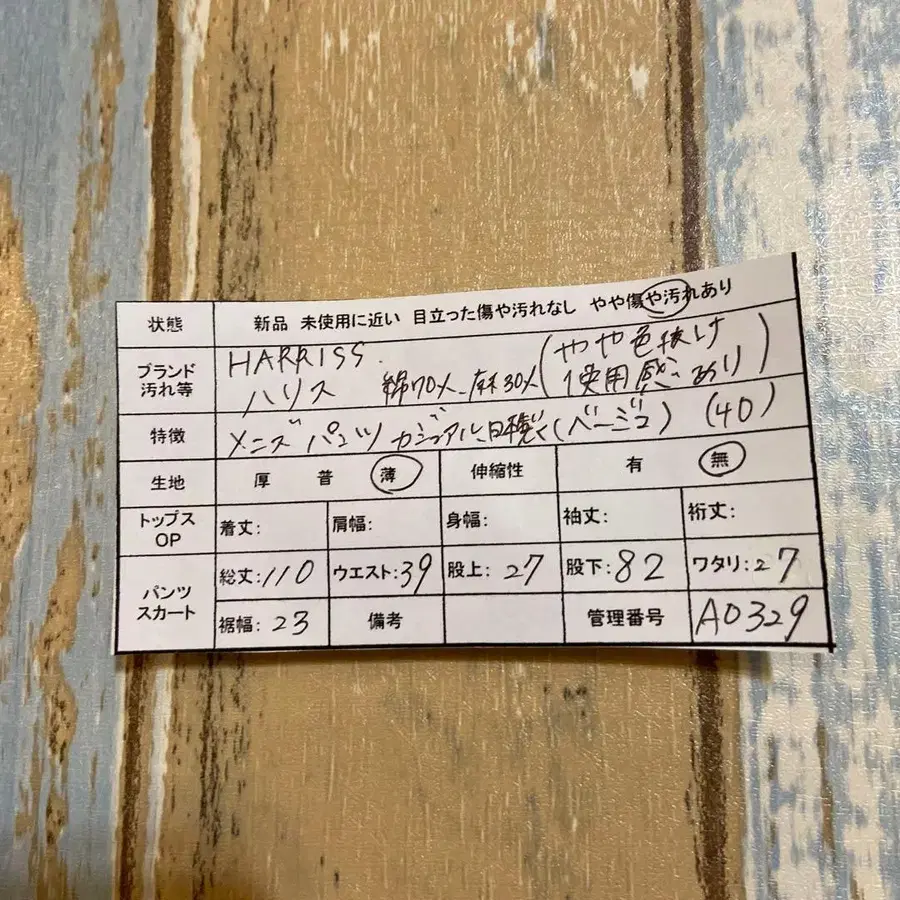 状態 新品 未使用に近い 目立った傷や汚れなし やや傷や汚れあり
ブランド HARRISS. (やや色抜け
汚れ等 ハリス 綿70% 麻30% 使用感あり)
特徴 メンズ パンツ カジュアル、日本製 (ベージュ) (40)
生地 厚 普 薄 伸縮性 有 無
トップス OP 着丈: 肩幅: 身幅: 袖丈: 裄丈:
パンツ スカート 総丈:110 ウエスト:39 股上:27 股下:82 ワタリ:27
裾幅:23 備考 管理番号 A0329